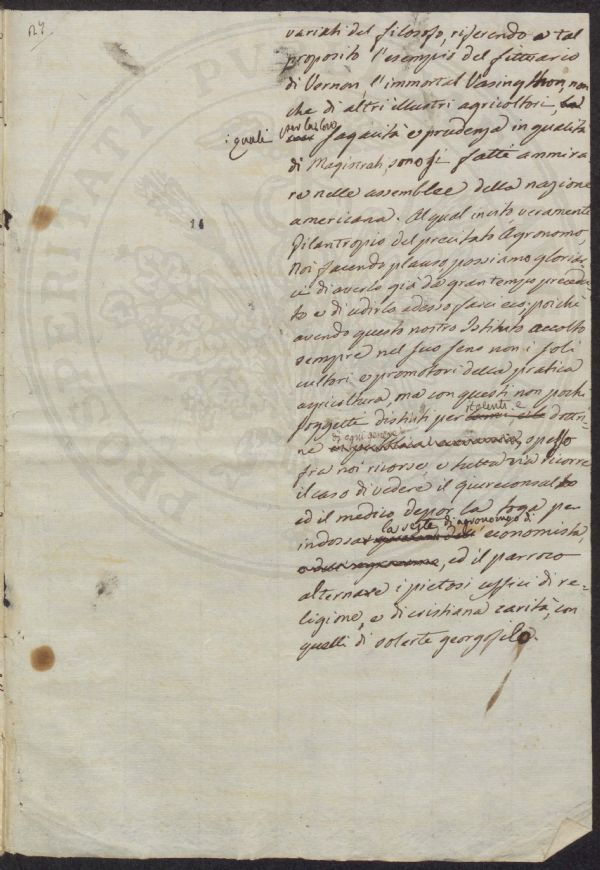 variati del filosofo, riferendo a tal
proposito l'esempio del fittuario
di Vernon, l'immortal Vasingthon, non
che di altri illustri agricoltori,
i quali per la loro sagacità e prudenza in qualità
di Magistrati, sono si fatti ammira
re nelle assemblee della nazione
americana. Al qual invito veramente
Filantropio del precitato Agronomo,
Noi facendo plauso, possiamo gloriar
ci di averlo già da gran tempo preveda
to e di udirlo adesso farci eco; poichè
avendo questo nostro Istituto accolto
sempre nel suo seno non i soli
cultori e promotori della pratica
agricoltura, ma con questi non pochi
soggetti distinti per i talenti e dottri
ne di ogni genere, spesso
fra noi ricorse, e tutta via ricorre
il caso di vedere il giureconsulto
ed il medico depor la toga per
indossar la veste di agronomo, o di economista,
ed il parroco
alternare i pietosi uffici di re-
ligione, e di cristiana carità, con
quelli di solerte georgofilo.
14